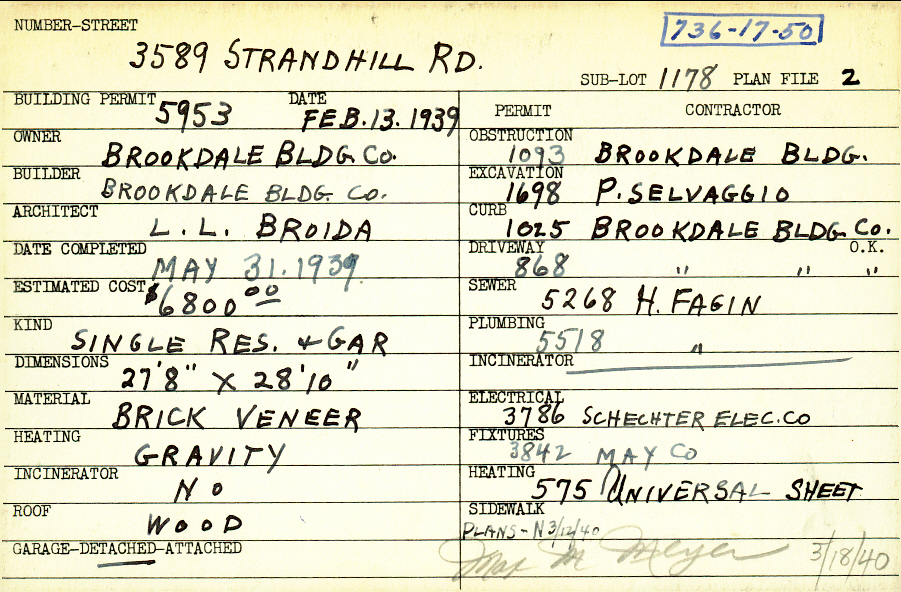 NUMBER-STREET
736-17-50
3589 STRANDHILL RD.
SUB-LOT 1178 PLAN FILE 2
BUILDING PERMIT 5953 DATE FEB.13.1939
OWNER BROOKDALE BLDG. Co.
BUILDER BROOKDALE BLDG. Co.
ARCHITECT L. L. BROIDA
DATE COMPLETED MAY 31.1939.
ESTIMATED COST $6800 00
KIND SINGLE RES. & GAR
DIMENSIONS 27'8" X 28'10"
MATERIAL BRICK VENEER
HEATING GRAVITY
INCINERATOR No
ROOF WOOD
GARAGE-DETACHED-ATTACHED
PERMIT CONTRACTOR
OBSTRUCTION 1093 BROOKDALE BLDG.
EXCAVATION 1698 P. SELVAGGIO
CURB 1025 BROOKDALE BLDG. Co.
DRIVEWAY 868 " " " O.K.
SEWER 5268 H. FAGIN
PLUMBING 5518 "
INCINERATOR
ELECTRICAL 3786 SCHECHTER ELEC. CO
FIXTURES 3842 MAY Co
HEATING 575 UNIVERSAL SHEET
SIDEWALK
PLANS-N 3/12/40
Max M Meyer 3/18/40